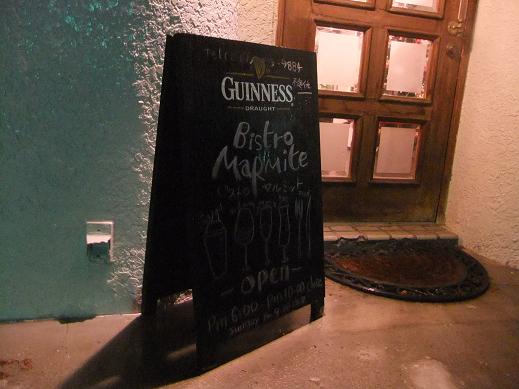 GUINNESS
DRAUGHT
Bistro
Marmite
ビストロ マルミット
OPEN
Pm 6:00 - Pm 10:00 close
sunday